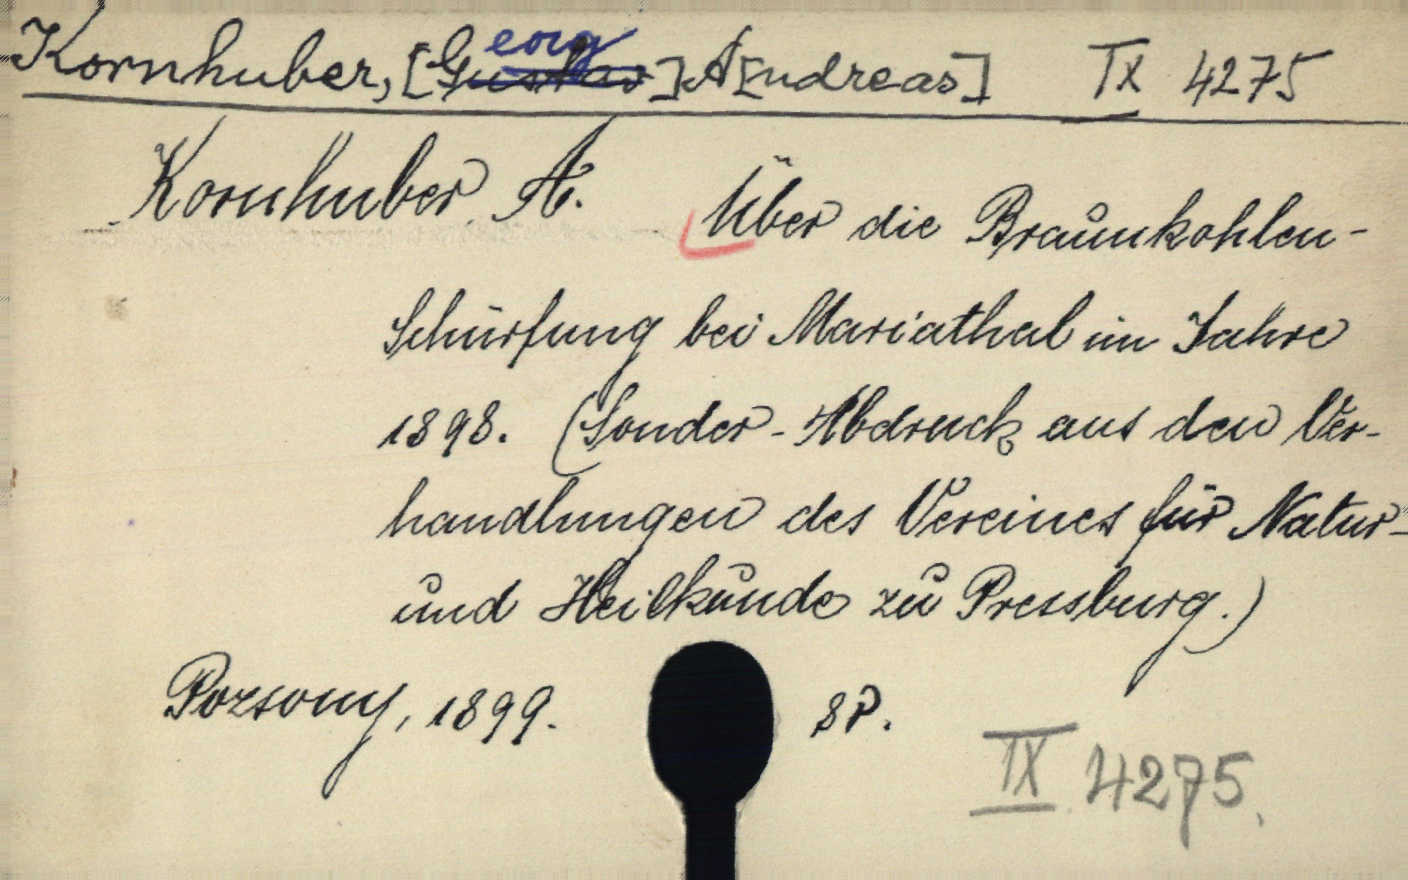 Kornhuber, [Georg] A[ndreas] IX 4275
Kornhuber A. Über die Braunkohlen-
Schürfung bei Mariathal im Jahre
1898. (Sonder-Abdruck aus den Ver-
handlungen des Vereines für Natur-
und Heilkunde zu Pressburg.)
Pozsony, 1899. 8P.
IX 4275.